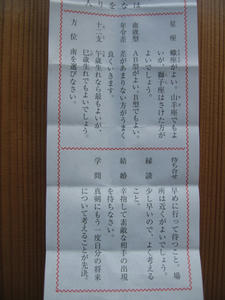 星座 蠍座がよい。山羊座でもよ
いが、獅子座はさけた方が
よいでしょう。
血液型 AB型がよい。B型でもよい。
年令差 差があまりない方がうまく
良くいきます。
十二支 午歳生れなら最もよいが、
巳歳生れでもよいでしょう。
方位 南を選びなさい。
待ち合せ 早めに行って待つこと。場
所は近くがよいでしょう。
縁談 少し早いので、よく考える
こと。
結婚 辛抱して素敵な相手の出現
を待ちなさい。
学問 真剣にもう一度自分の将来
について考えることが先決。